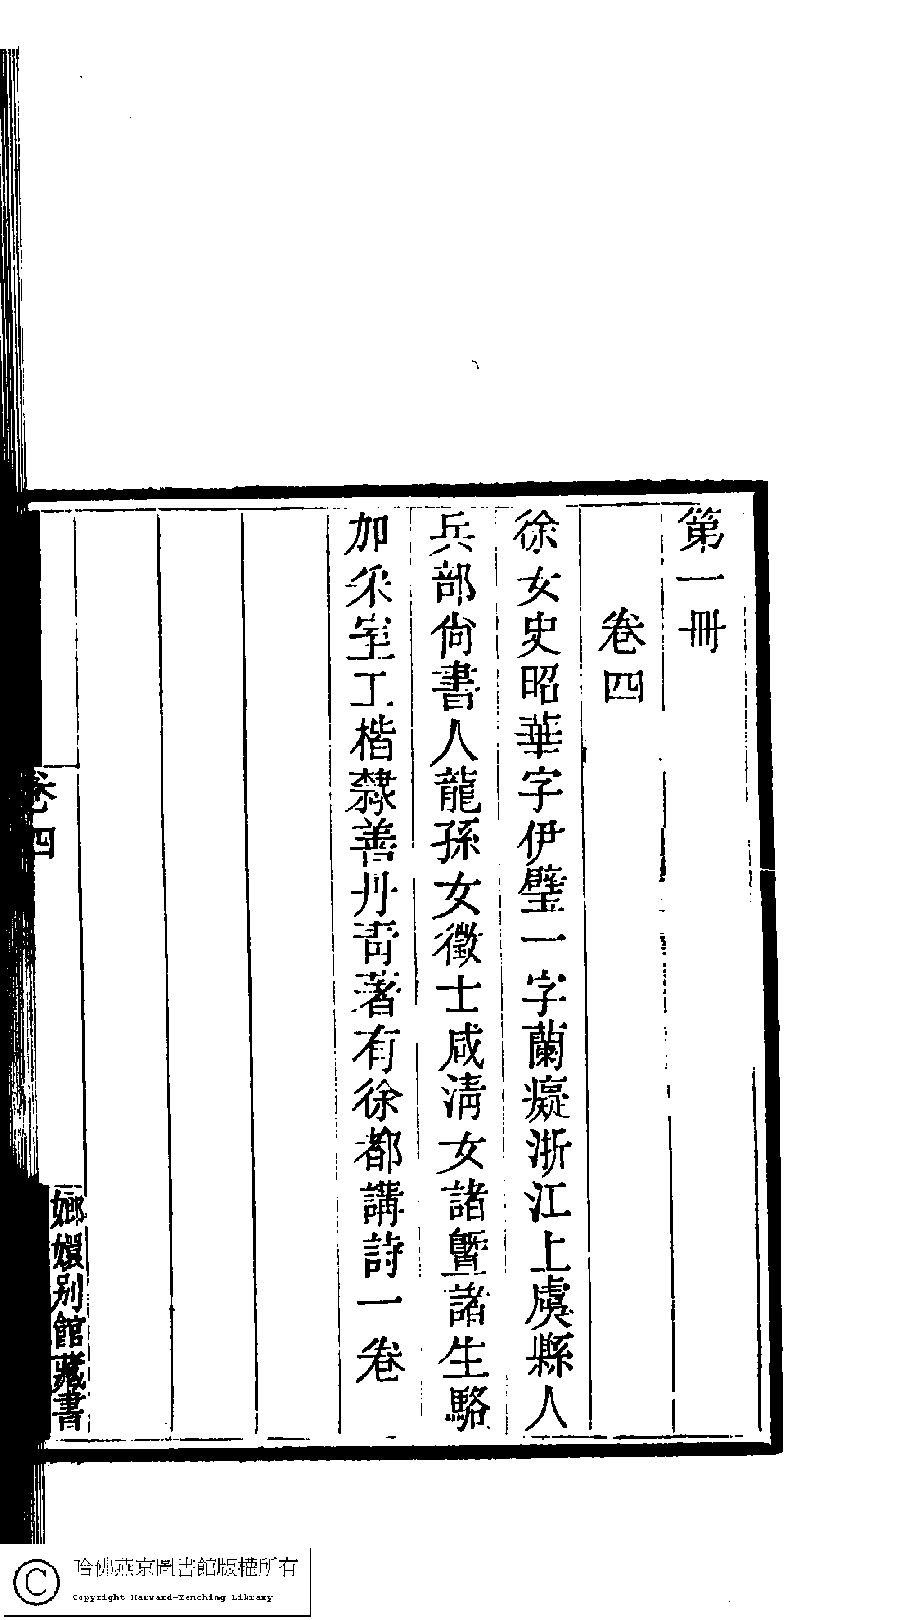 第一冊
卷四
徐女史昭華字伊璧一字蘭癡浙江上虞縣人
兵部尙書人龍孫女徵士咸淸女諸曁諸生駱
加采室工楷隸善丹靑著有徐都講詩一卷
卷四
嫏嬛別館藏書
哈佛燕京圖書館版權所有
Copyright Harvard-Yenching Library